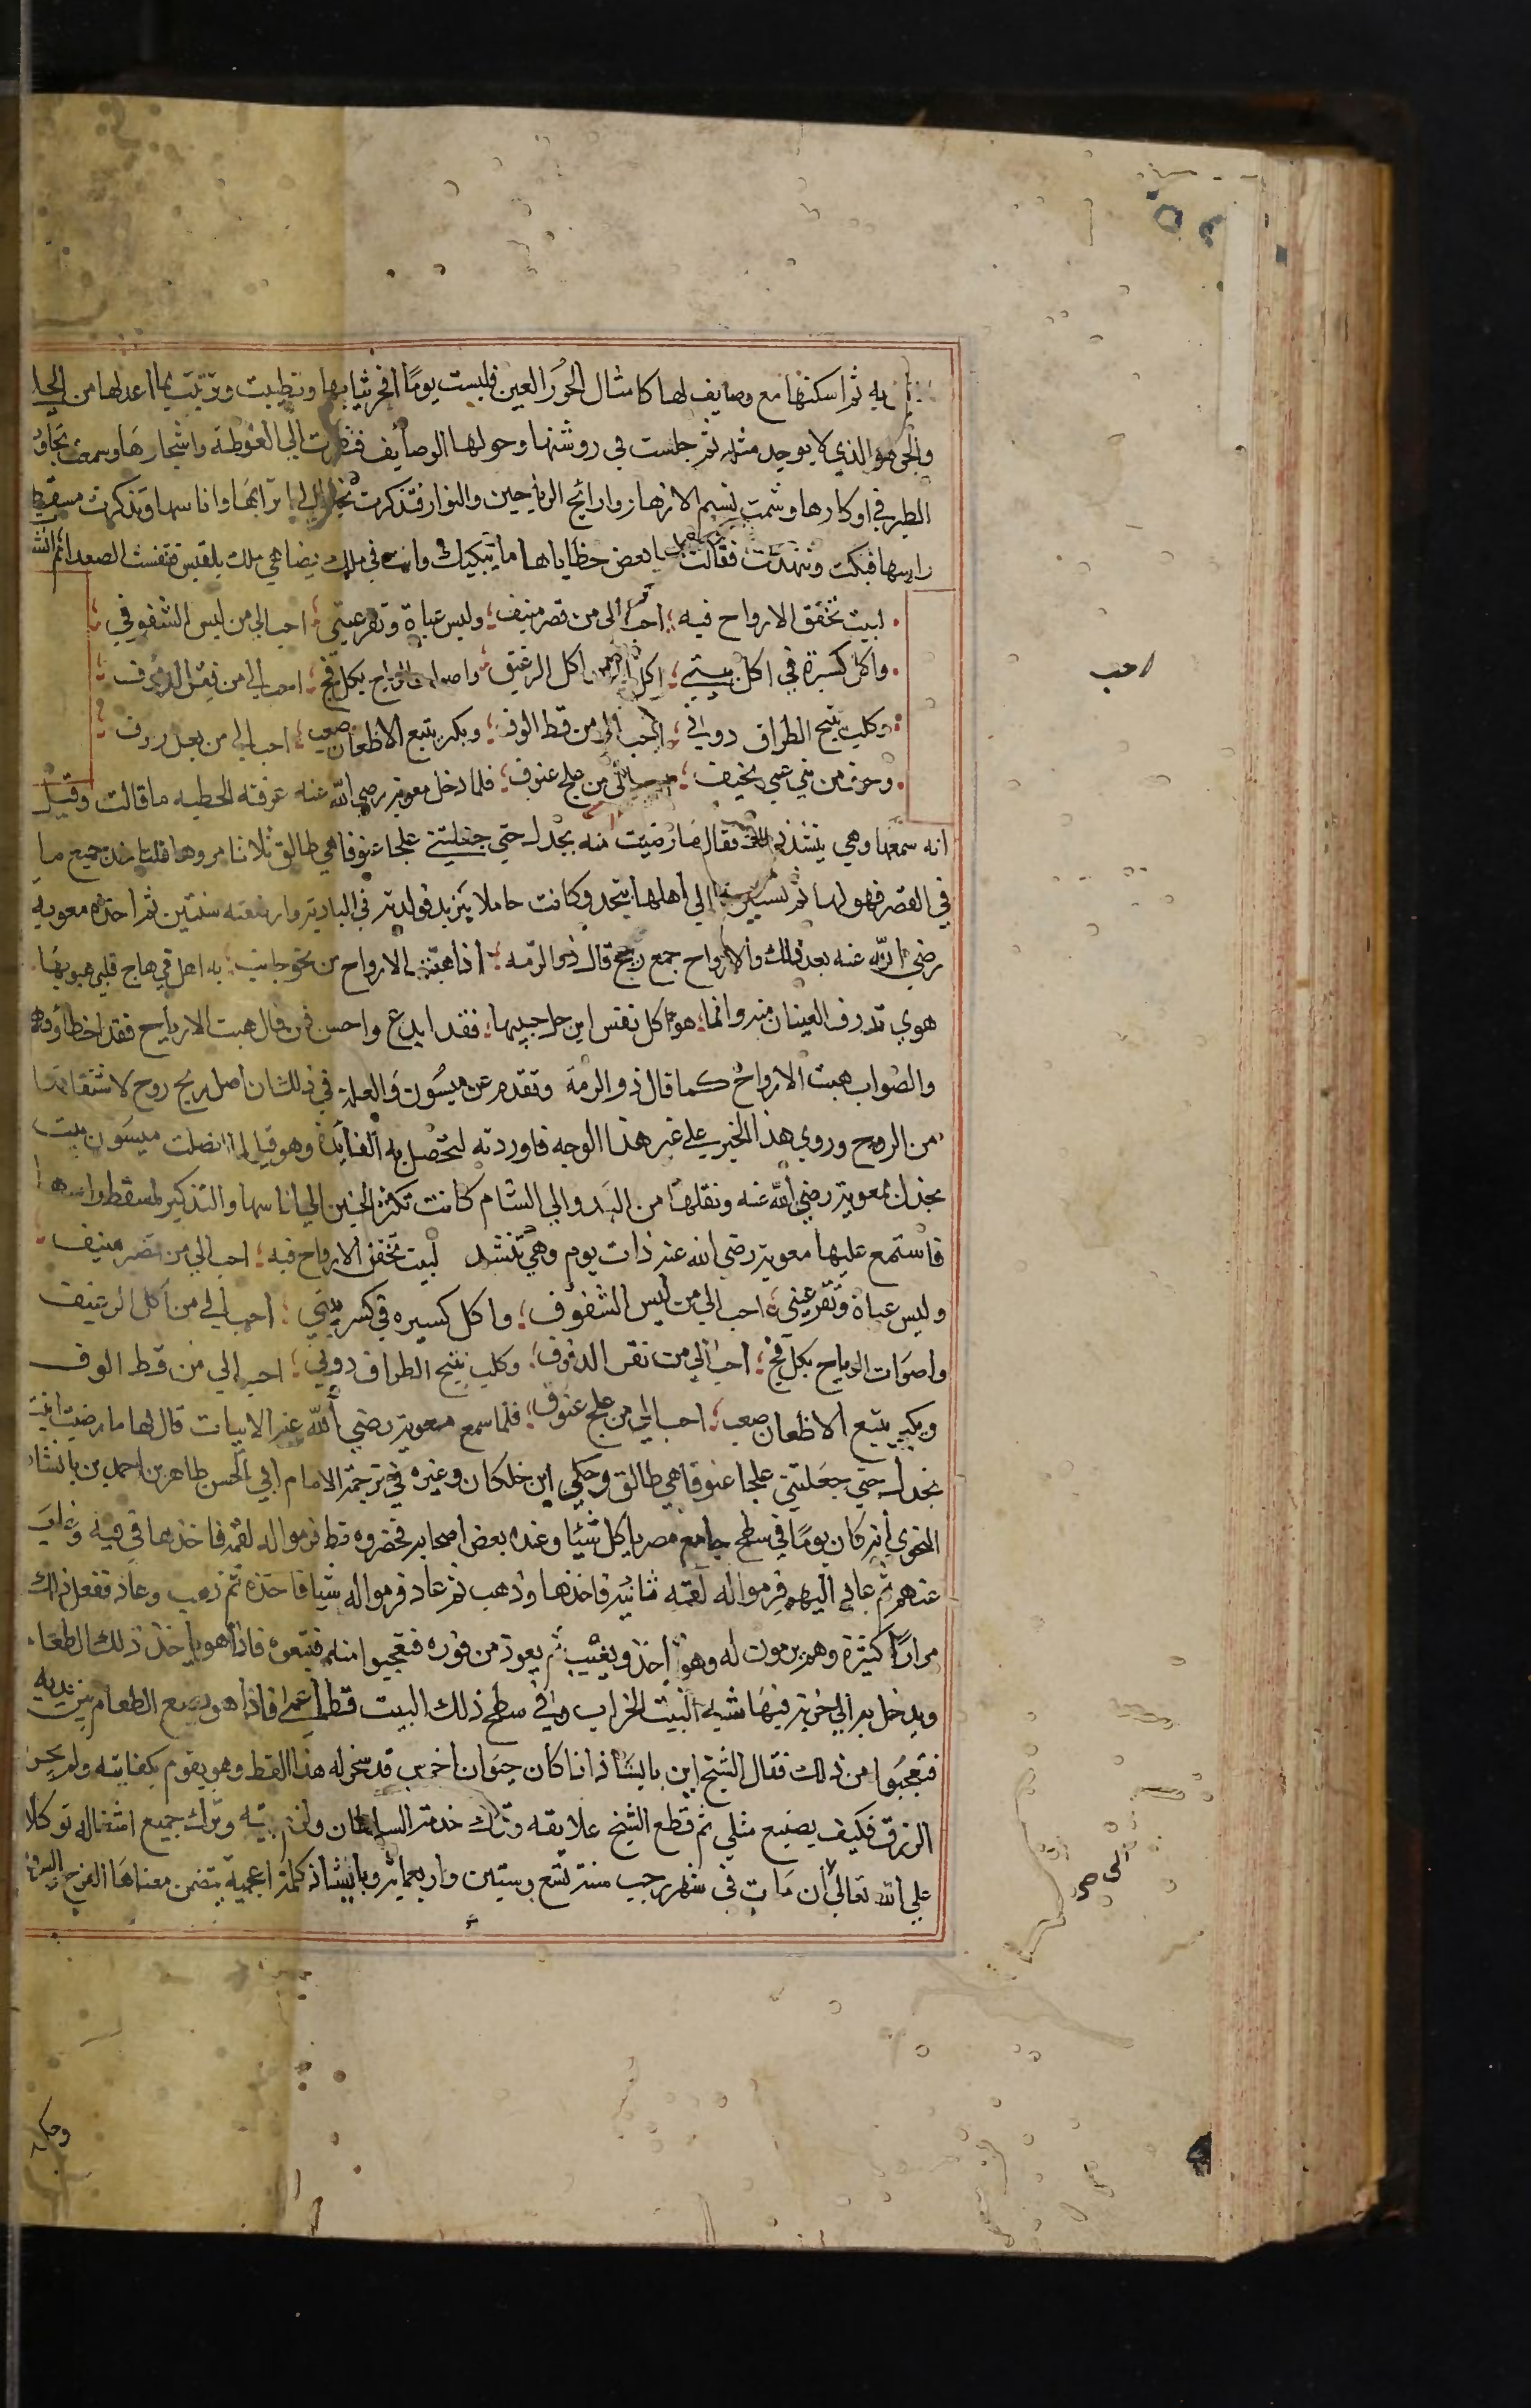 يه ثم اسكنها مع وصايف لها كامثال الحور العين فلبست يومًا افخر ثيابها وتطيبت وتزينت بما اعد لها من الحلي
والجوهر الذي لا يوجد مثله ثم جلست في روشنها وحولها الوصايف فنظرت الي الغوطة واشجارها وسمعت تجاوب
الطير في اوكارها وشمت نسيم الازهار وارائج الرياحين والنوار فتذكرت اترابها واناسها وتذكرت مسقط
راسها فبكت وتنهدت فقالت بعض حظاياها ما يبكيك وانت في ملك يضاهي ملك بلقيس فتنفست الصعدا ثم انشدت
لبيت تخفق الارواح فيه احب الي من قصر منيف ولبس عباة وتقر عيني احب الي من لبس الشفوفي
واكل كسيرة في اكل بيتي من اكل الرغيق بكل فج احب الي من الدفوف
وكلب ينبح الطراق دوني احب الي من قط الوف وبكر يتبع الاظعان صعب احب الي من بعل زروف
وخرق من بني عمي نحيف من علج عنوف فلما دخل معوية رضي الله عنه عرفته الحظيه ما قالت وقيل
انه سمعها وهي تنشد ذلك فقال ما رضيت بجدل حتي جعلتني علجا عنوفا هي طالق ثلاثا مروها فلتاخذ جميع ما
في القصر فهو لها ثم الي اهلها بنجد وكانت حاملا بيزيد فولدته في البادية وارضعته سنتين ثم اخذه معويه
رضي الله عنه بعد ذلك والارواح جمع ريح قال ذو الرمه اذا هبت الارواح من نحو جانب به اهل مي هاج قلبي هبوبها
هوي تذرف العينان منه وانما هوي كل نفس اين حل حبيبها فقد ابدع واحسن فمن قال هبت الارياح فقد اخطا ووهم
والصواب هبت الارواح كما قال ذو الرمة وتقدم عن ميسون والعلة في ذلك ان اصل ريح روح لاشتقاقها
من الروح وروي هذا الخبر علي غير هذا الوجه فاوردته لتحصل به الفائدة وهو قيل لما اتصلت ميسون بنت
بجدل بمعوية رضي الله عنه ونقلها من البدو الي الشام كانت تكثر الحنين الي اناسها والتذكير لمسقط راسها
فاستمع عليها معوية رضي الله عنه ذات يوم وهي تنشد لبيت تخفق الارواح فيه احب الي من قصر منيف
ولبس عباة وتقر عيني احب الي من لبس الشفوف واكل كسيره في كسر بيتي احب الي من اكل الرغيف
واصوات الرياح بكل فج احب الي من نقر الدفوف وكلب ينبح الطراق دوني احب الي من قط الوف
وبكر يتبع الاظعان صعب احب الي من علج عنوف فلما سمع معوية رضي الله عنه الابيات قال لها ما رضيت ابنت
بجدل حتي جعلتني علجا عنوفا هي طالق وحكي ابن خلكان وغيره في ترجمة الامام ابي الحسن طاهر بن احمد بن بابشاذ
النحوي انه كان يومًا في سطح جامع مصر ياكل شيئا وعنده بعض اصحابه فحضروه قط فرموا له لقمة فاخذها في فيه وغاب
عنهم ثم عاد اليهم فرموا له لقمة ثانية فاخذها وذهب ثم عاد فرموا له شيا فاخذه ثم ذهب وعاد ففعل ذلك
مرارًا كثيرة وهم يرمون له وهو ياخذ ويغيب ثم يعود من فوره فتعجبوا منه فتبعوه فاذا هو ياخذ ذلك الطعام
ويدخل به الي خربة فيها شبه البيت الخراب وفي سطح ذلك البيت قط اعمي فاذا هو يضع الطعام بين يديه
فتعجبوا من ذلك فقال الشيخ ابن بابشاذ اذا كان حيوان اخرس قد سخر له هذا القط وهو يقوم بكفايته ولم يحرم
الرزق فكيف يضيع مثلي ثم قطع الشيخ علايقه وترك خدمة السلطان ولزم بيته وترك جميع اشغاله توكلا
علي الله تعالي الي ان مات في شهر رجب سنة تسع وستين واربعماية وبابشاذ كلمة اعجمية يتضمن معناها الفرح والسرور
احب
الى
وحكي